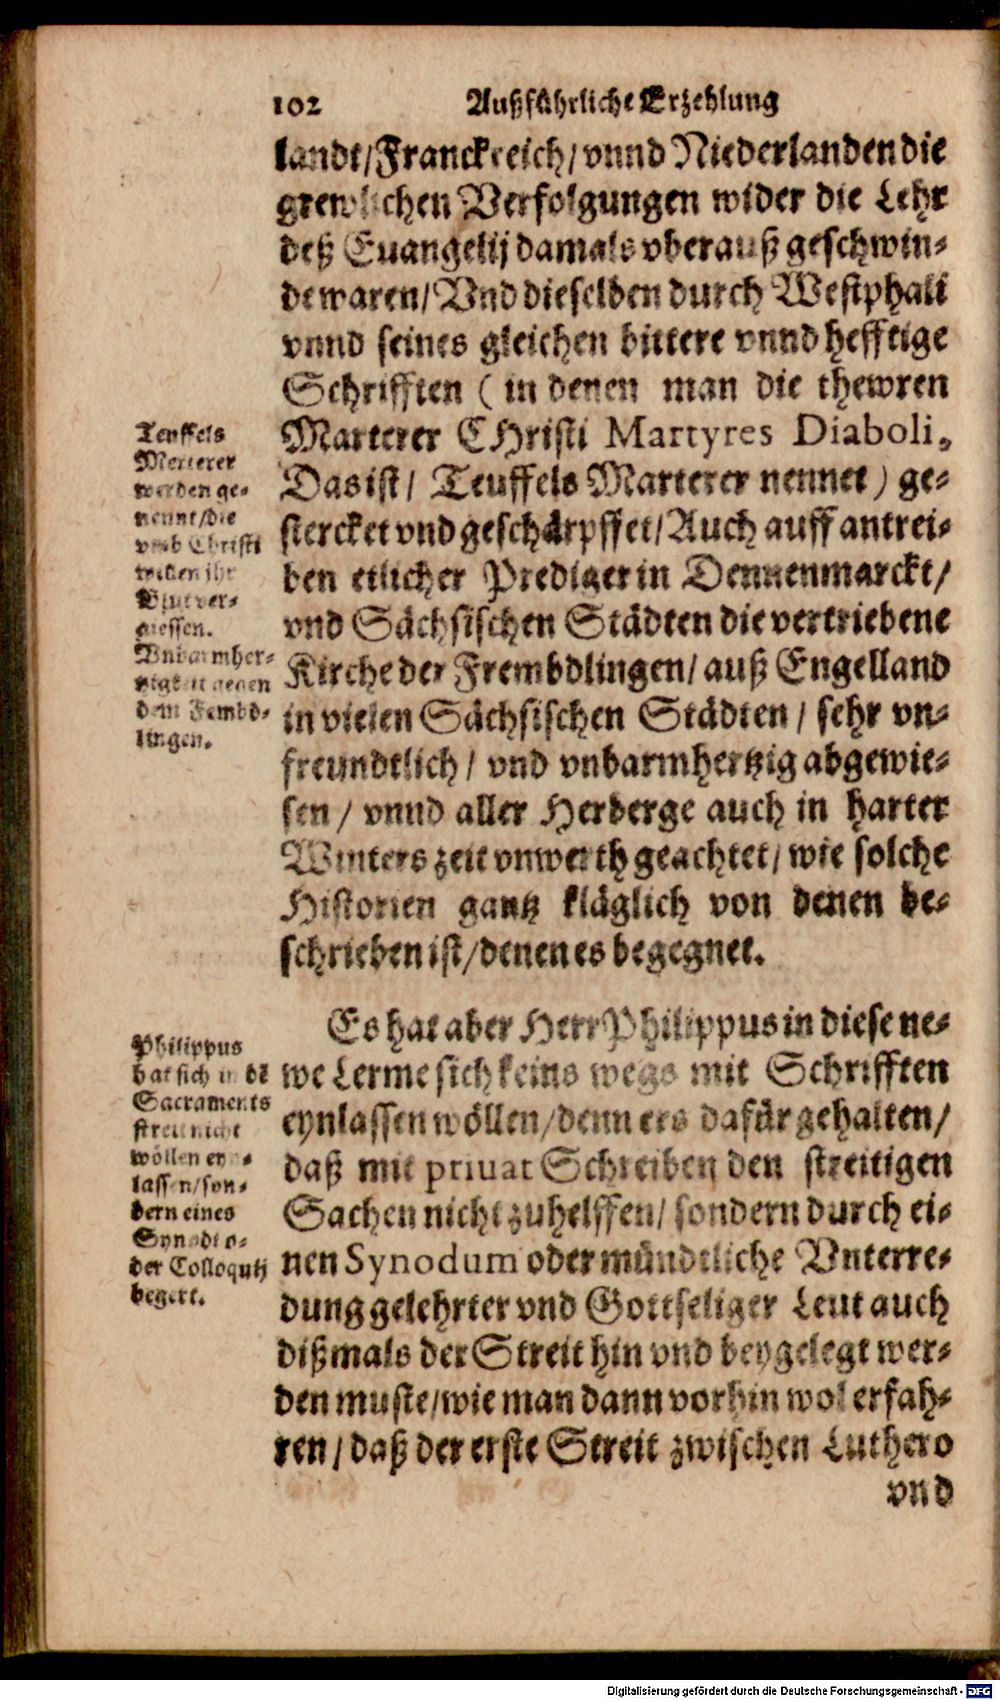 102 Außführliche Erzehlung
landt/Franckreich/vnnd Niederlanden die
grewlichen Verfolgungen wider die Lehr
deß Euangelij damals vberauß geschwin-
de waren/Vnd dieselben durch Westphali
vnnd seines gleichen bittere vnnd hefftige
Schrifften (in denen man die thewren
Marterer CHristi Martyres Diaboli,
Das ist/ Teuffels Marterer nennet) ge-
stercket vnd geschärpffet/Auch auff antrei-
ben etlicher Prediger in Dennenmarckt/
vnd Sächsischen Städten die vertriebene
Kirche der Frembdlingen/auß Engelland
in vielen Sächsischen Städten / sehr vn-
freundtlich / vnd vnbarmhertzig abgewie-
sen / vnnd aller Herberge auch in harter
Winters zeit vnwerth geachtet/wie solche
Historien gantz kläglich von denen be-
schrieben ist/denen es begegnet.
Teuffels
Merterer
werden ge-
nennt/die
vmb Christi
willen ihr
Blut ver-
giessen.
Vnbarmher-
tzigkeit gegen
den Fembd-
lingen.
Es hat aber Herr Philippus in diese ne-
we Lerme sich keins wegs mit Schrifften
eynlassen wöllen/denn ers dafür gehalten/
daß mit priuat Schreiben den streitigen
Sachen nicht zuhelffen/sondern durch ei-
nen Synodum oder mündtliche Vnterre-
dung gelehrter vnd Gottseliger Leut auch
dißmals der Streit hin vnd beygelegt wer-
den muste/wie man dann vorhin wol erfah-
ren/daß der erste Streit zwischen Luthero
vnd
Philippus
hat sich in dē
Sacraments
streit nicht
wöllen eyn-
lassen/son-
dern eines
Synodi o-
der Colloquij
begert.
Digitalisierung gefördert durch die Deutsche Forschungsgemeinschaft - DFG